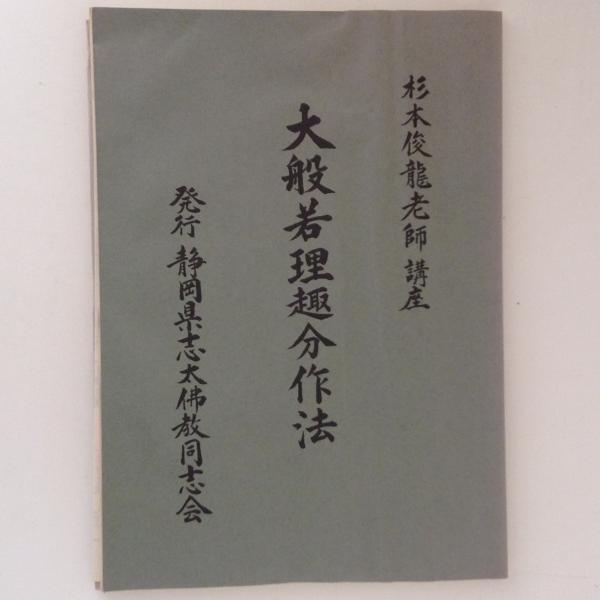 杉本俊龍老師 講座
大般若理趣分作法
発行 静岡県志太佛教同志会